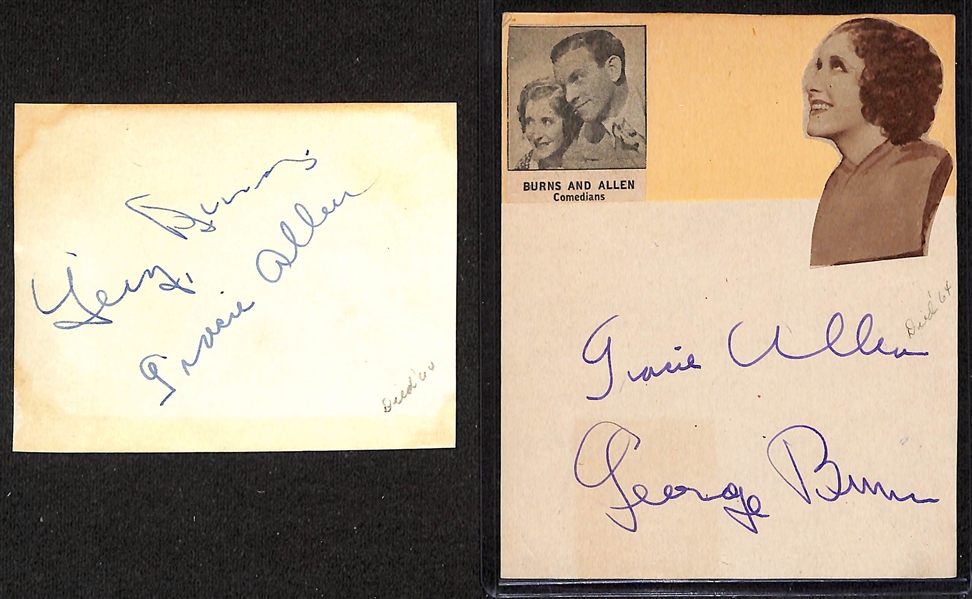 George Burns
Gracie Allen
Died '64
BURNS AND ALLEN
Comedians
Died '64
Gracie Allen
George Burns